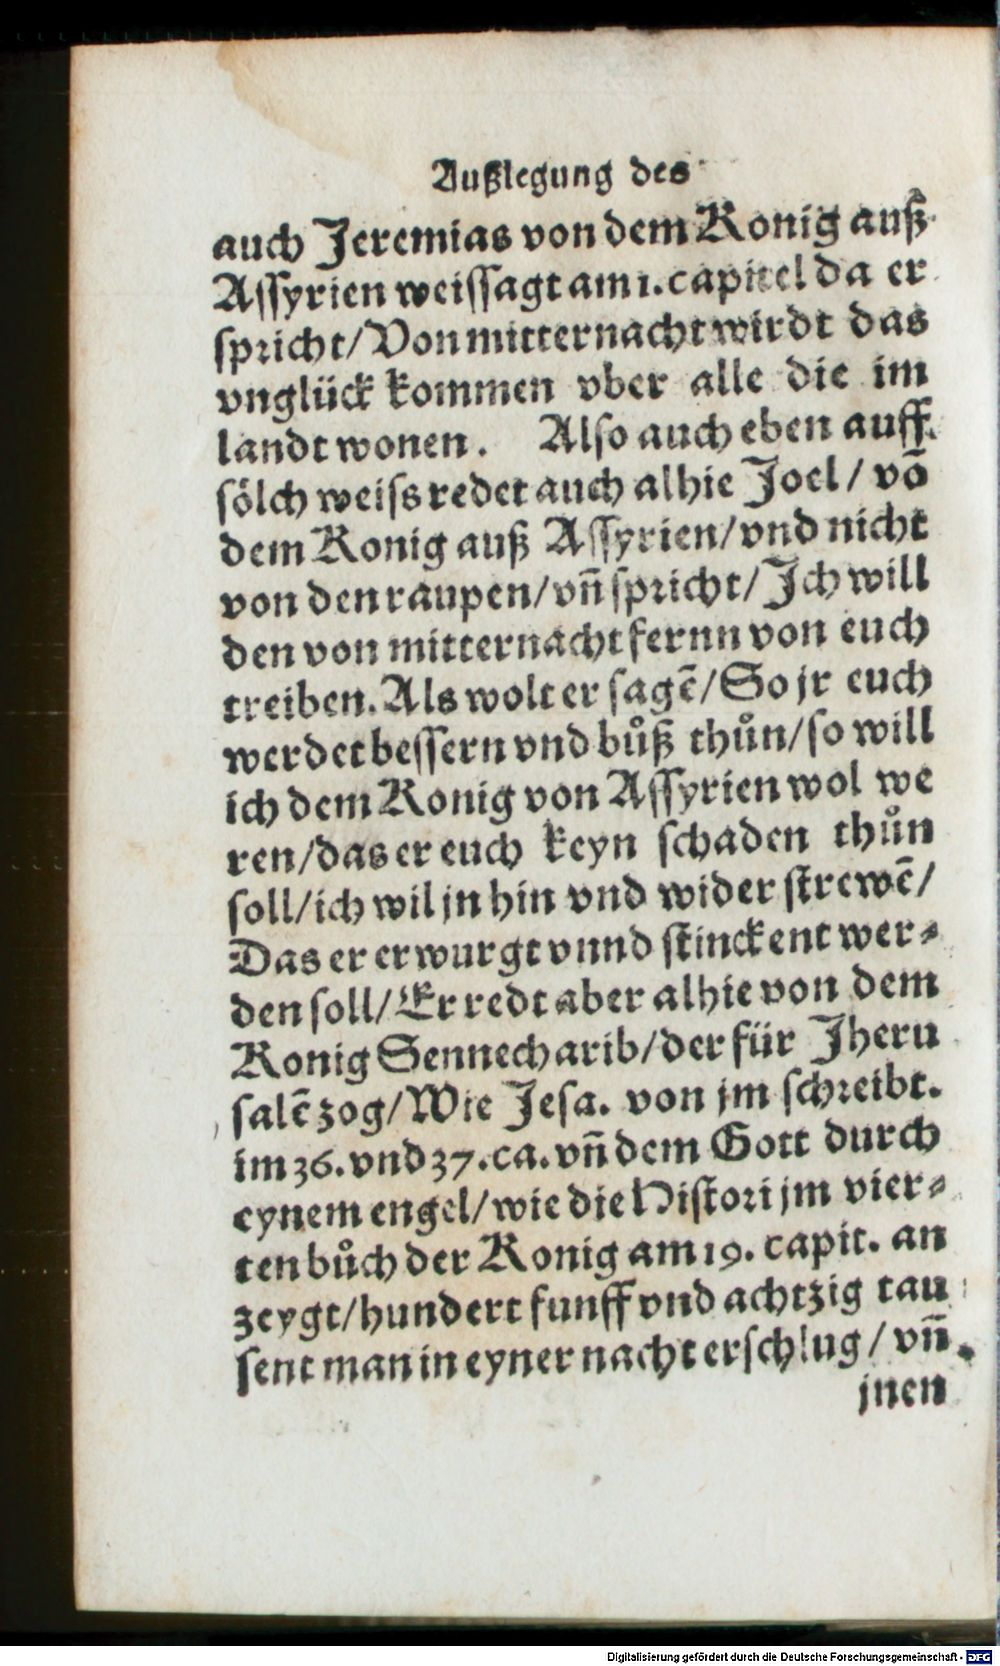 Außlegung des
auch Jeremias von dem Konig auß
Aſſyrien weiſſagt am 1. capitel da er
ſpꝛicht/ Von mitternacht wirdt das
vnglück kommen vber alle die im
landt wonen. Alſo auch eben auff
ſölch weiſs redet auch alhie Joel/ võ
dem Konig auß Aſſyrien/ vnd nicht
von den raupen/ vñ ſpꝛicht/ Jch will
den von mitternacht fernn von euch
treiben. Als wolt er ſagẽ/ So jr euch
werdet beſſern vnd bůß thůn/ ſo will
ich dem Konig von Aſſyrien wol we
ren/ das er euch keyn ſchaden thůn
ſoll/ ich wil jn hin vnd wider ſtrewẽ/
Das er erwurgt vnnd ſtinckent wer⸗
den ſoll/ Er redt aber alhie von dem
Konig Sennecharib/ der für Jheru
ſalẽ zog/ Wie Jeſa. von jm ſchꝛeibt.
im 36. vnd 37. ca. vñ dem Gott durch
eynem engel/ wie die Hiſtoꝛi jm vier⸗
ten bůch der Konig am 19. capit. an
zeygt/ hundert funff vnd achtzig tau
ſent man in eyner nacht erſchlug/ vñ
jnen
Digitalisierung gefördert durch die Deutsche Forschungsgemeinschaft - DFG